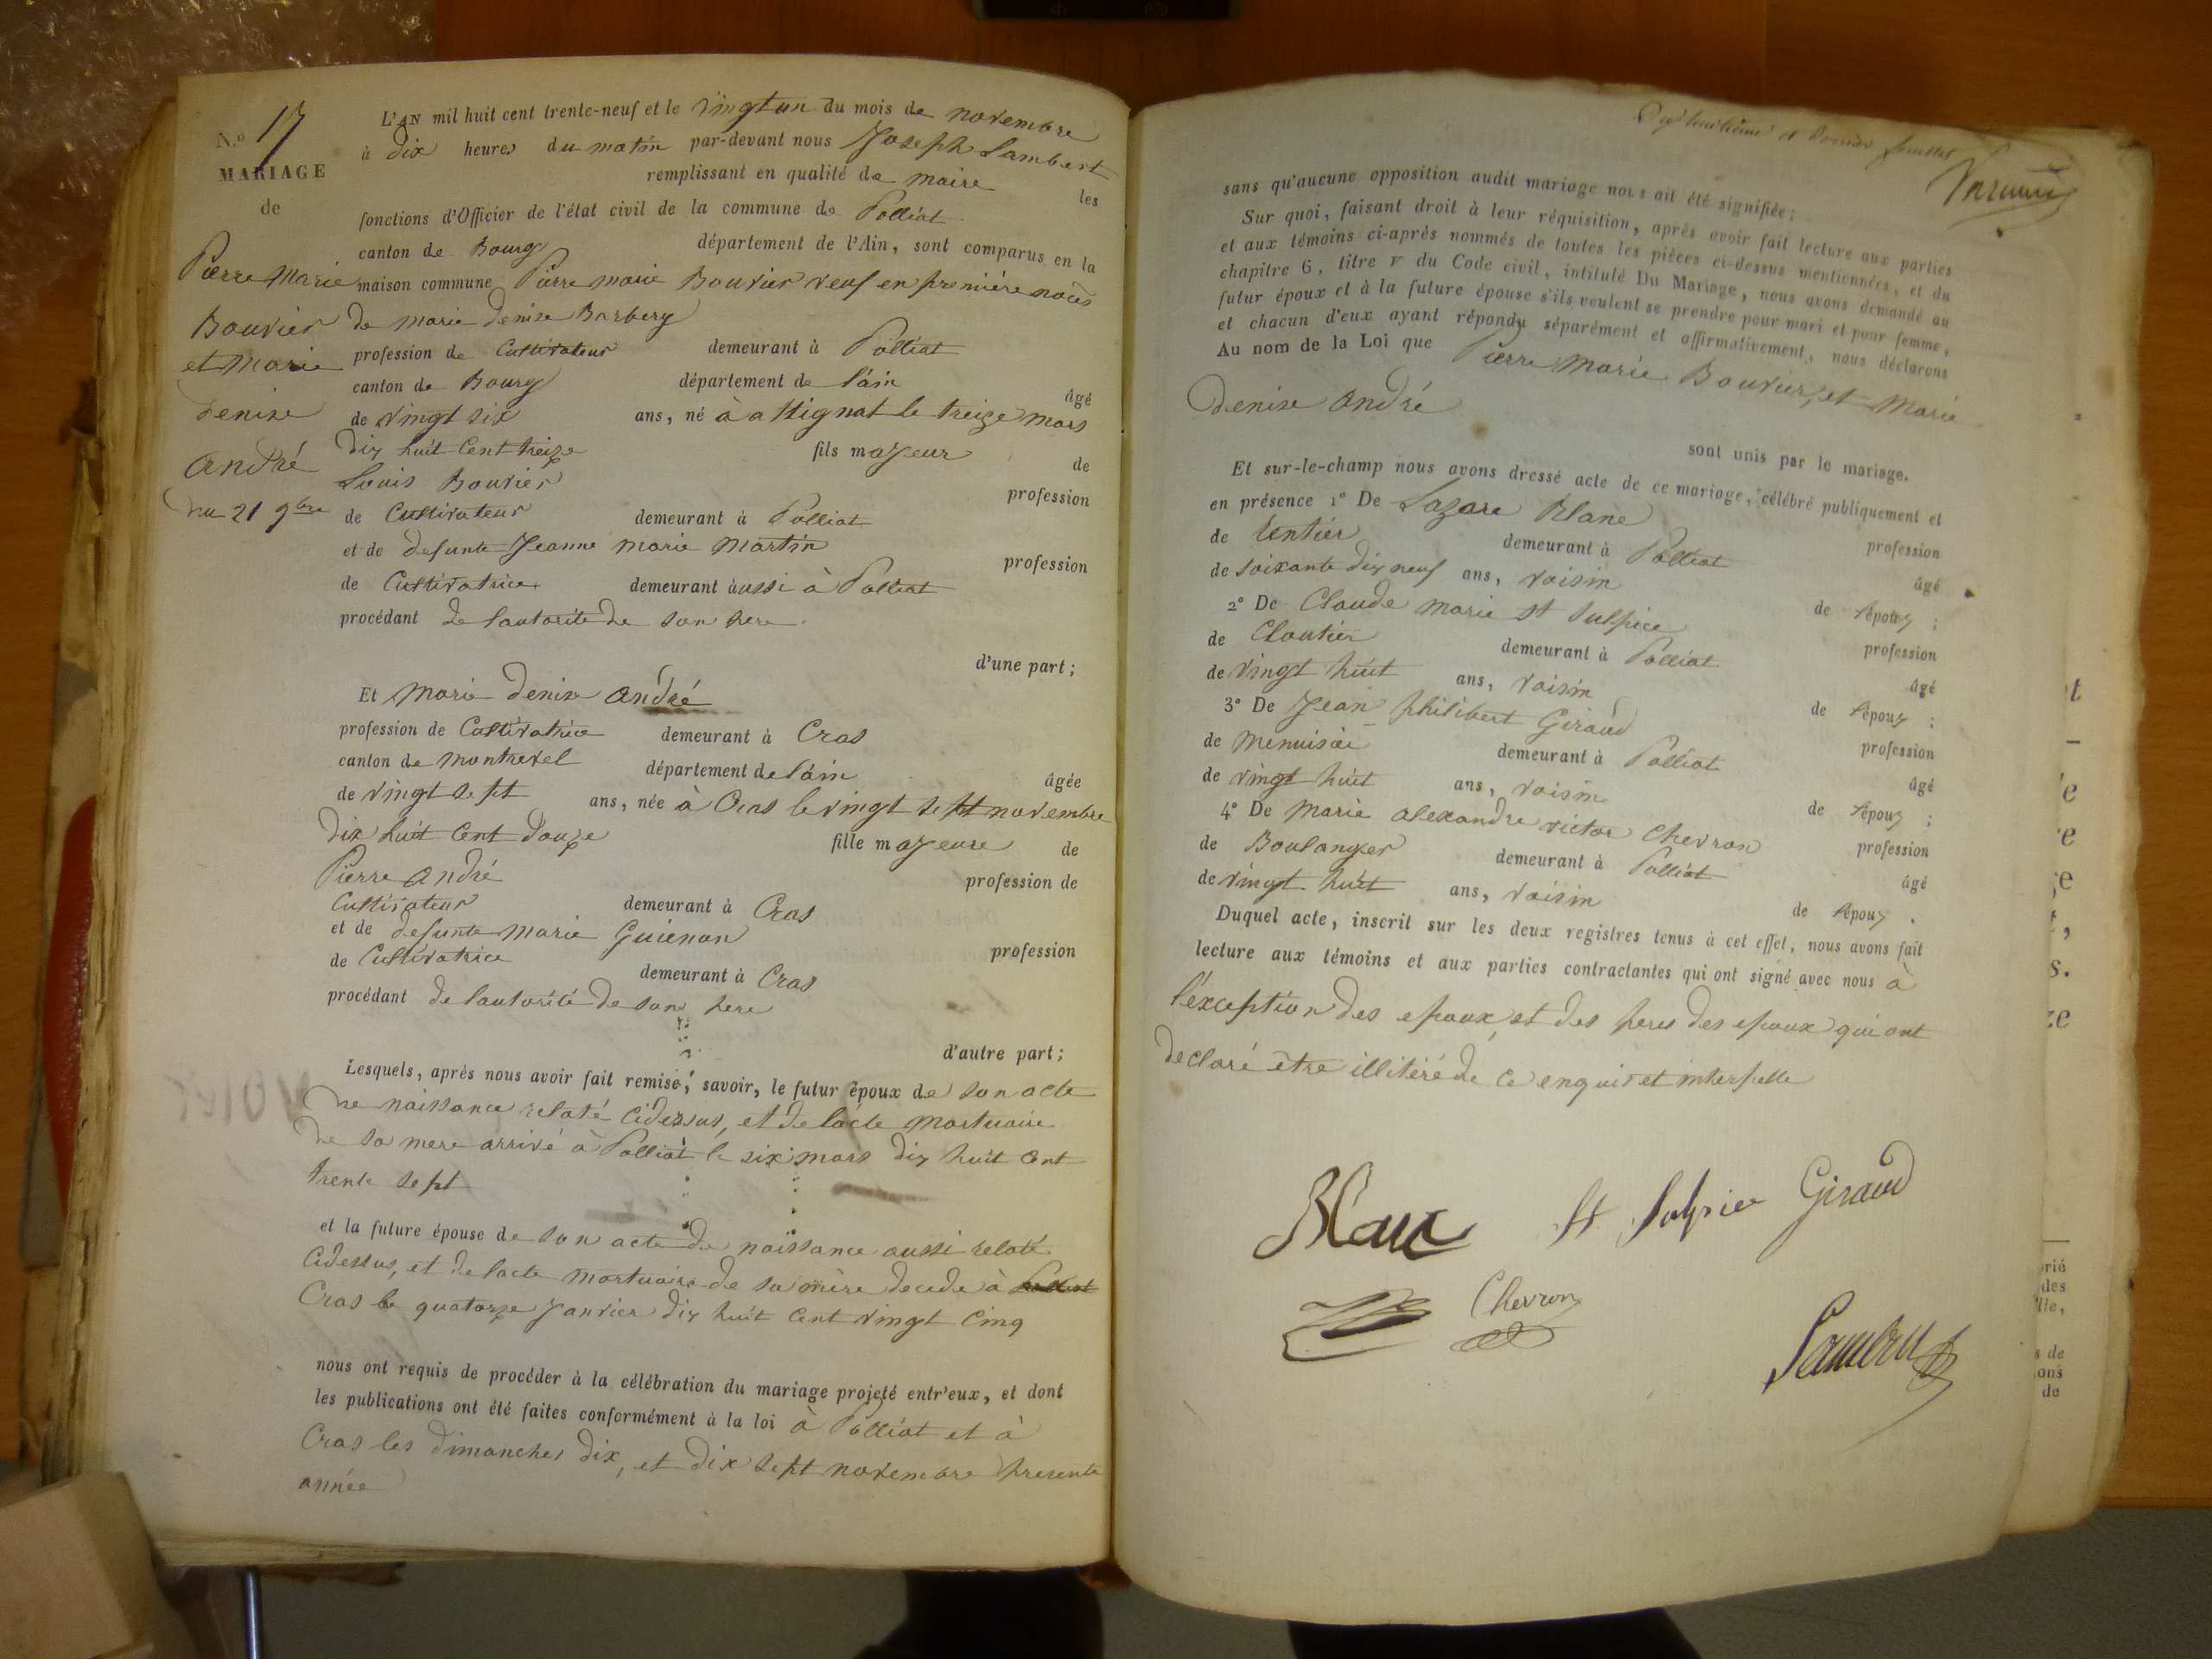 N.o 17
MARIAGE
de
Pierre Marie
Bouvier
et Marie
denise
andré
du 21 9bre
L'AN mil huit cent trente-neuf et le vingt un du mois de novembre
à dix heures du matin par-devant nous Joseph Lambert
remplissant en qualité de maire les
fonctions d'Officier de l'état civil de la commune de Polliat
canton de Bourg département de l'Ain, sont comparus en la
maison commune Pierre marie Bouvier veuf en première noces
de marie denise Barbery
profession de Cultivateur demeurant à Polliat
canton de Bourg département de l'ain âgé
de vingt six ans, né à attignat le treize mars
dix huit Cent treize fils majeur de
Louis Bouvier profession
de Cultivateur demeurant à Polliat
et de defunte Jeanne marie martin profession
de Cultivatrice demeurant aussi à Polliat
procédant de l'autorité de son pere
d'une part ;
Et marie denise andré
profession de Cultivatrice demeurant à Cras
canton de montrevel département de l'ain âgée
de vingt sept ans, née à Cras le vingt sept novembre
dix huit Cent douze fille majeure de
Pierre andré profession de
Cultivateur demeurant à Cras
et de defunte marie Guienon profession
de Cultivatrice demeurant à Cras
procédant de l'autorité de son pere
d'autre part ;
Lesquels, après nous avoir fait remise, savoir, le futur époux de son acte
de naissance relaté cidessus, et de lacte mortuaire
de sa mere arrivé à Polliat le six mars dix huit Cent
trente sept
et la future épouse de son acte de naissance aussi relaté
cidessus, et de lacte mortuaire de sa mère decede à Polliat
Cras le quatorze Janvier dix huit Cent vingt Cinq
nous ont requis de procéder à la célébration du mariage projeté entr'eux, et dont
les publications ont été faites conformément à la loi à Polliat et à
Cras les dimanches dix, et dix sept novembre presente
année
Dix huitième et dernier feuillet
sans qu'aucune opposition audit mariage nous ait été signifiée ;
Sur quoi, faisant droit à leur réquisition, après avoir fait lecture aux parties
et aux témoins ci-après nommés de toutes les pièces ci-dessus mentionnées, et du
chapitre 6, titre v du Code civil, intitulé Du Mariage, nous avons demandé au
futur époux et à la future épouse s'ils veulent se prendre pour mari et pour femme,
et chacun d'eux ayant répondu séparément et affirmativement, nous déclarons
Au nom de la Loi que Pierre marie Bouvier, et marie
denise andré
sont unis par le mariage.
Et sur-le-champ nous avons dressé acte de ce mariage, célébré publiquement et
en présence 1° De Lazare Blanc profession
de Rentier demeurant à Polliat âgé
de soixante dix neuf ans, voisin de l'époux ;
2° De Claude marie St Sulpice profession
de Cloutier demeurant à Polliat âgé
de vingt huit ans, voisin de l'époux ;
3° De Jean philibert Giraud profession
de menuisier demeurant à Polliat âgé
de vingt huit ans, voisin de l'époux ;
4° De Marie alexandre victor Chevron profession
de Boulanger demeurant à Polliat âgé
de vingt huit ans, voisin de l'époux .
Duquel acte, inscrit sur les deux registres tenus à cet effet, nous avons fait
lecture aux témoins et aux parties contractantes qui ont signé avec nous à
l'exception des epoux, et des peres des epoux qui ont
declaré être illitéré de ce enquis et interpelle
Blanc St Sulpice Giraud
Chevron
Lambert